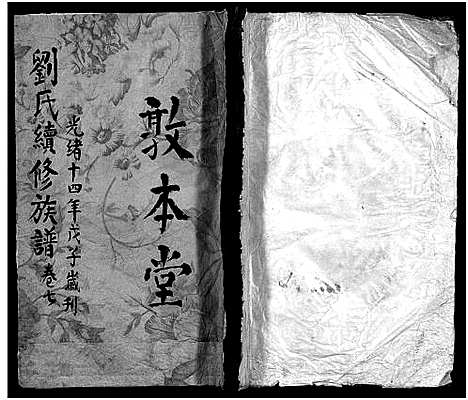 敦本堂
光緒十四年戊子歲刊
劉氏續修族譜 卷七